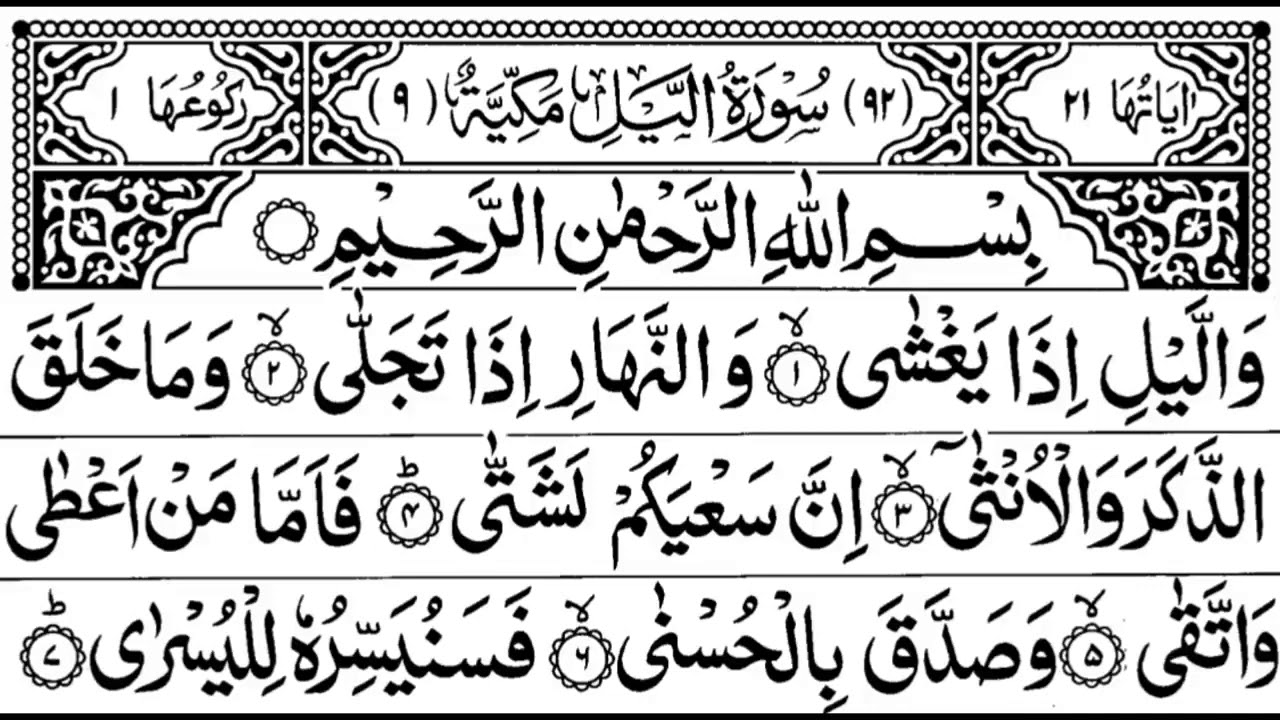 اٰيَاتُهَا ٢١ (٩٢) سُوْرَةُ الَّيْلِ مَكِّيَّةٌ (٩) رُكُوْعُهَا ١
بِسْمِ اللّٰهِ الرَّحْمٰنِ الرَّحِيْمِ
وَالَّيْلِ اِذَا يَغْشٰى ۙ﴿١﴾ وَالنَّهَارِ اِذَا تَجَلّٰى ۙ﴿٢﴾ وَمَا خَلَقَ
الذَّكَرَ وَالْاُنْثٰۤى ۙ﴿٣﴾ اِنَّ سَعْيَكُمْ لَشَتّٰى ؕ﴿۴﴾ فَاَمَّا مَنْ اَعْطٰى
وَاتَّقٰى ۙ﴿۵﴾ وَصَدَّقَ بِالْحُسْنٰى ۙ﴿۶﴾ فَسَنُيَسِّرُهٗ لِلْيُسْرٰى ؕ﴿۷﴾